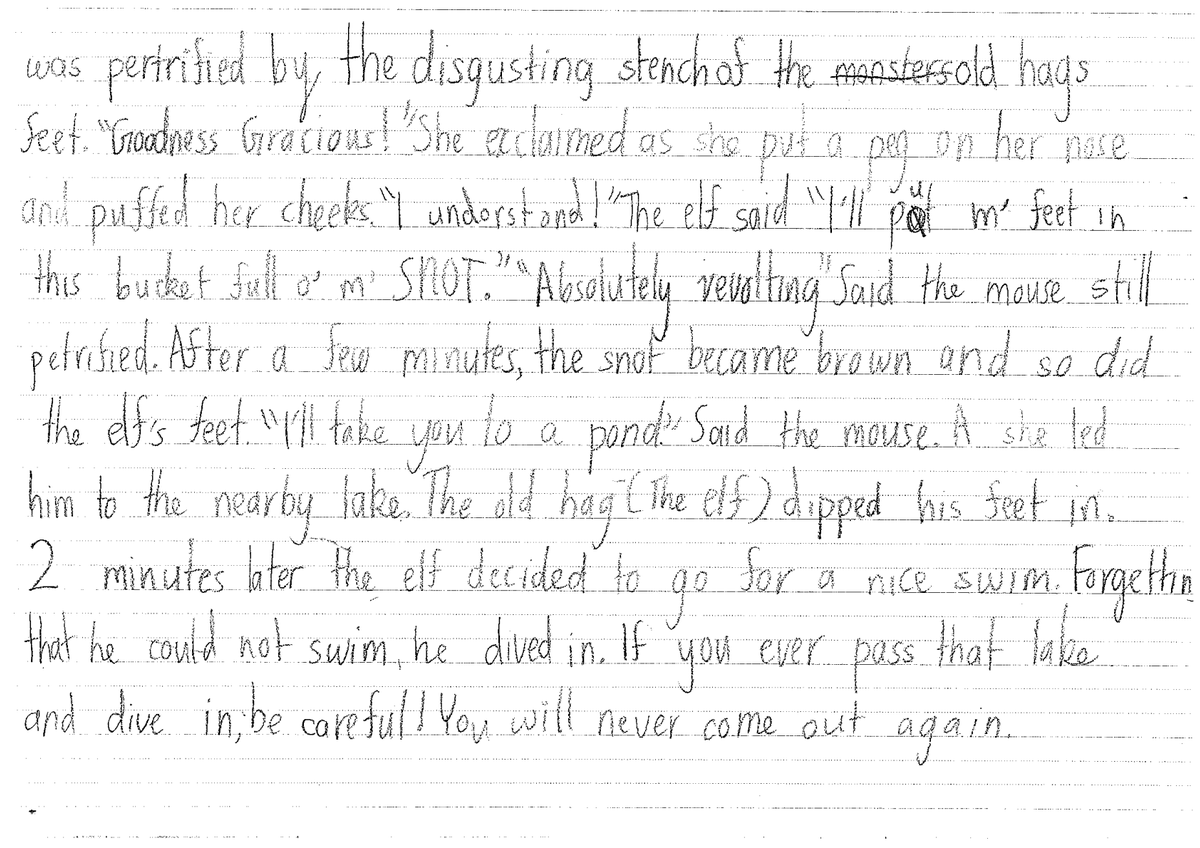 was pertrified by, the disgusting stench of the monsters old hags
feet. "Goodness Gracious!" She exclaimed as she put a peg on her nose
and puffed her cheeks. "I understand!" The elf said "I'll put m' feet in
this bucket full o' m' SNOT." "Absolutely revolting" Said the mouse still
petrified. After a few minutes, the snot became brown and so did
the elf's feet. "I'll take you to a pond." Said the mouse. A she led
him to the nearby lake. The old hag (The elf) dipped his feet in.
2 minutes later the elf decided to go for a nice swim. Forgettin
that he could not swim, he dived in. If you ever pass that lake
and dive in, be careful! You will never come out again.